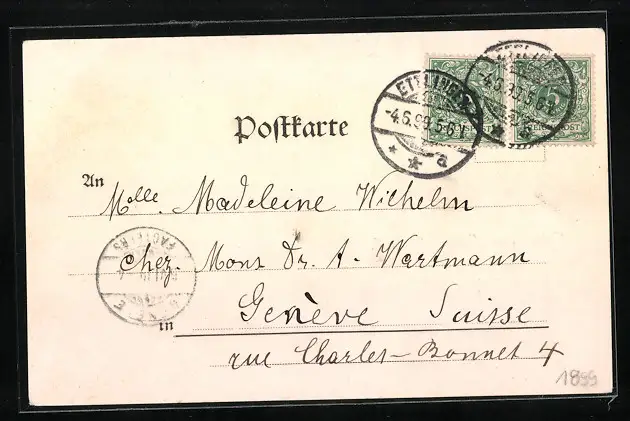 Postkarte
ETTLINGEN
-4.6.99.5-6N.
a
5
An Mlle. Madeleine Wilhelm
chez. Mons Dr. A. Wartmann
in Genève Suisse
rue Charles-Bonnet 4
FACTEURS
1899